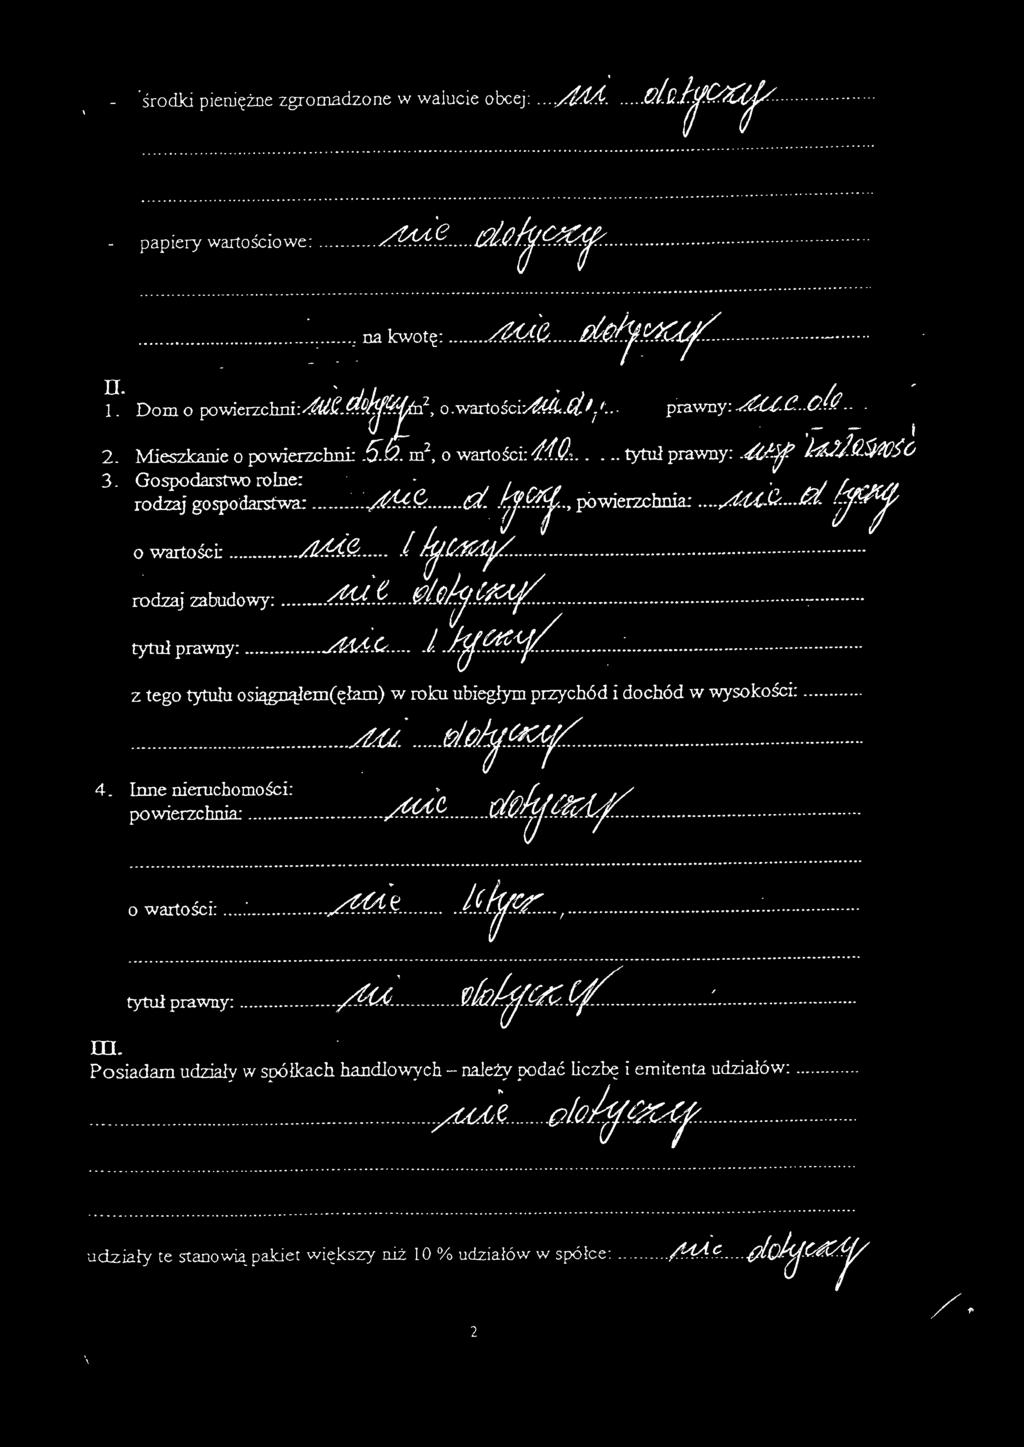 - środki pieniężne zgromadzone w walucie obcej: ... dotyczy
- papiery wartościowe: ... nie dotyczy
na kwotę: ... nie dotyczy
II.
1. Dom o powierzchni: nie dotyczy m², o wartości: ... prawny: nie do...
2. Mieszkanie o powierzchni: 56 m², o wartości: 110... tytuł prawny: wsp własność
3. Gospodarstwo rolne:
rodzaj gospodarstwa: ... nie d tyczy, powierzchnia: ... nie d tyczy
o wartości: ... nie tyczy
rodzaj zabudowy: ... nie dotyczy
tytuł prawny: ... nie tyczy
z tego tytułu osiągnąłem(ęłam) w roku ubiegłym przychód i dochód w wysokości: ...
ni dotyczy
4. Inne nieruchomości:
powierzchnia: ... nie dotyczy
o wartości: ... nie
tytuł prawny: ... ni dotyczy
III.
Posiadam udziały w spółkach handlowych – należy podać liczbę i emitenta udziałów: ...
nie dotyczy
udziały te stanowią pakiet większy niż 10 % udziałów w spółce: ... nie dotyczy
2